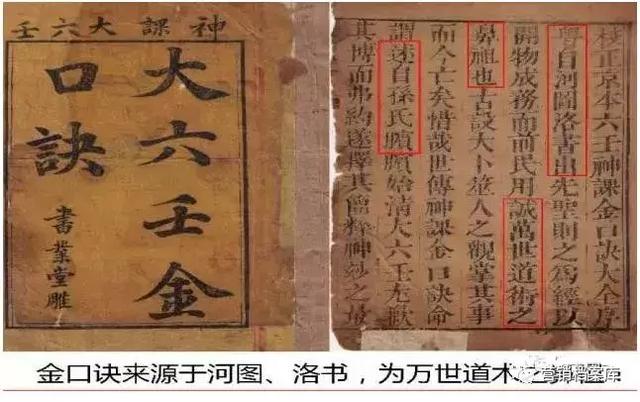 神課大六壬
大六壬金
口訣
書業堂雕
校正京本六壬神課金口訣大全序
嘗自河圖洛書出先聖則之為經以
開物成務而前民用誠萬世道術之
鼻祖也古設大卜筮人之觀掌其事
而今亡矣惜哉世傳神課金口訣命
謂述自孫氏臏臏始清大六壬尤歉
其博而弗約遂擇其簡粹神妙之
金口诀来源于河图、洛书，为万世道术
营销档案库